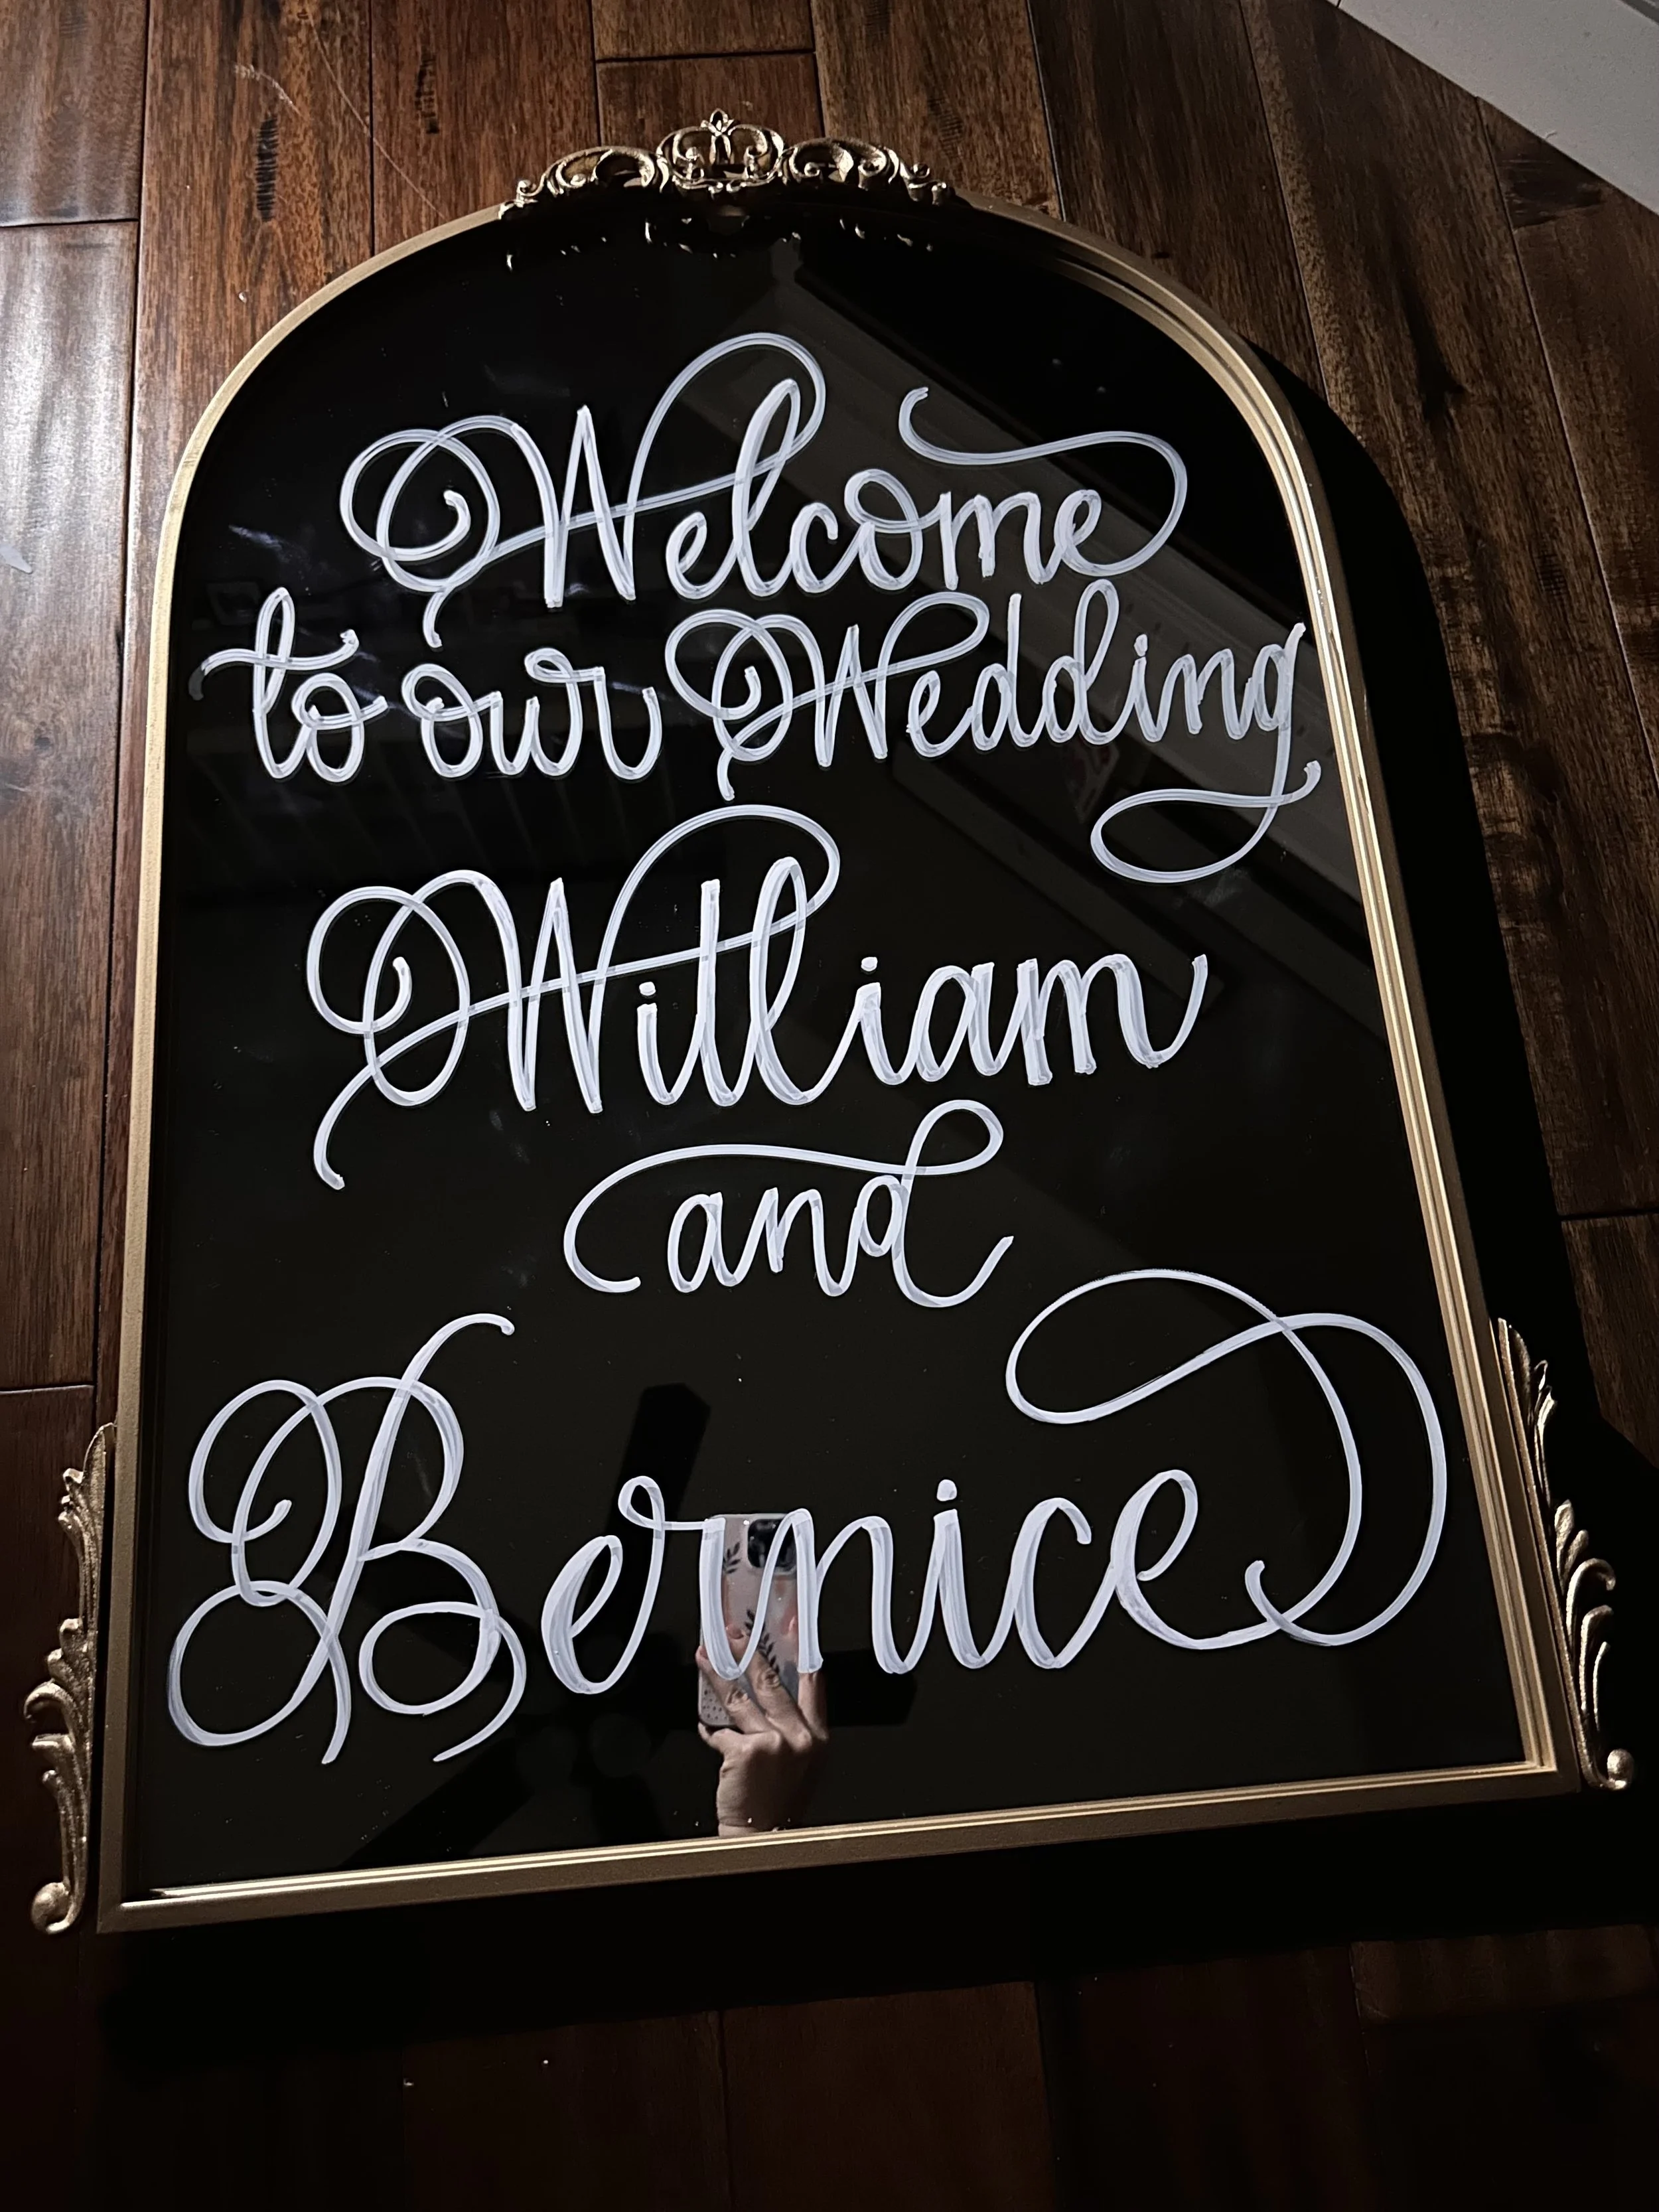 Welcome
to our Wedding
William
and
Bernice